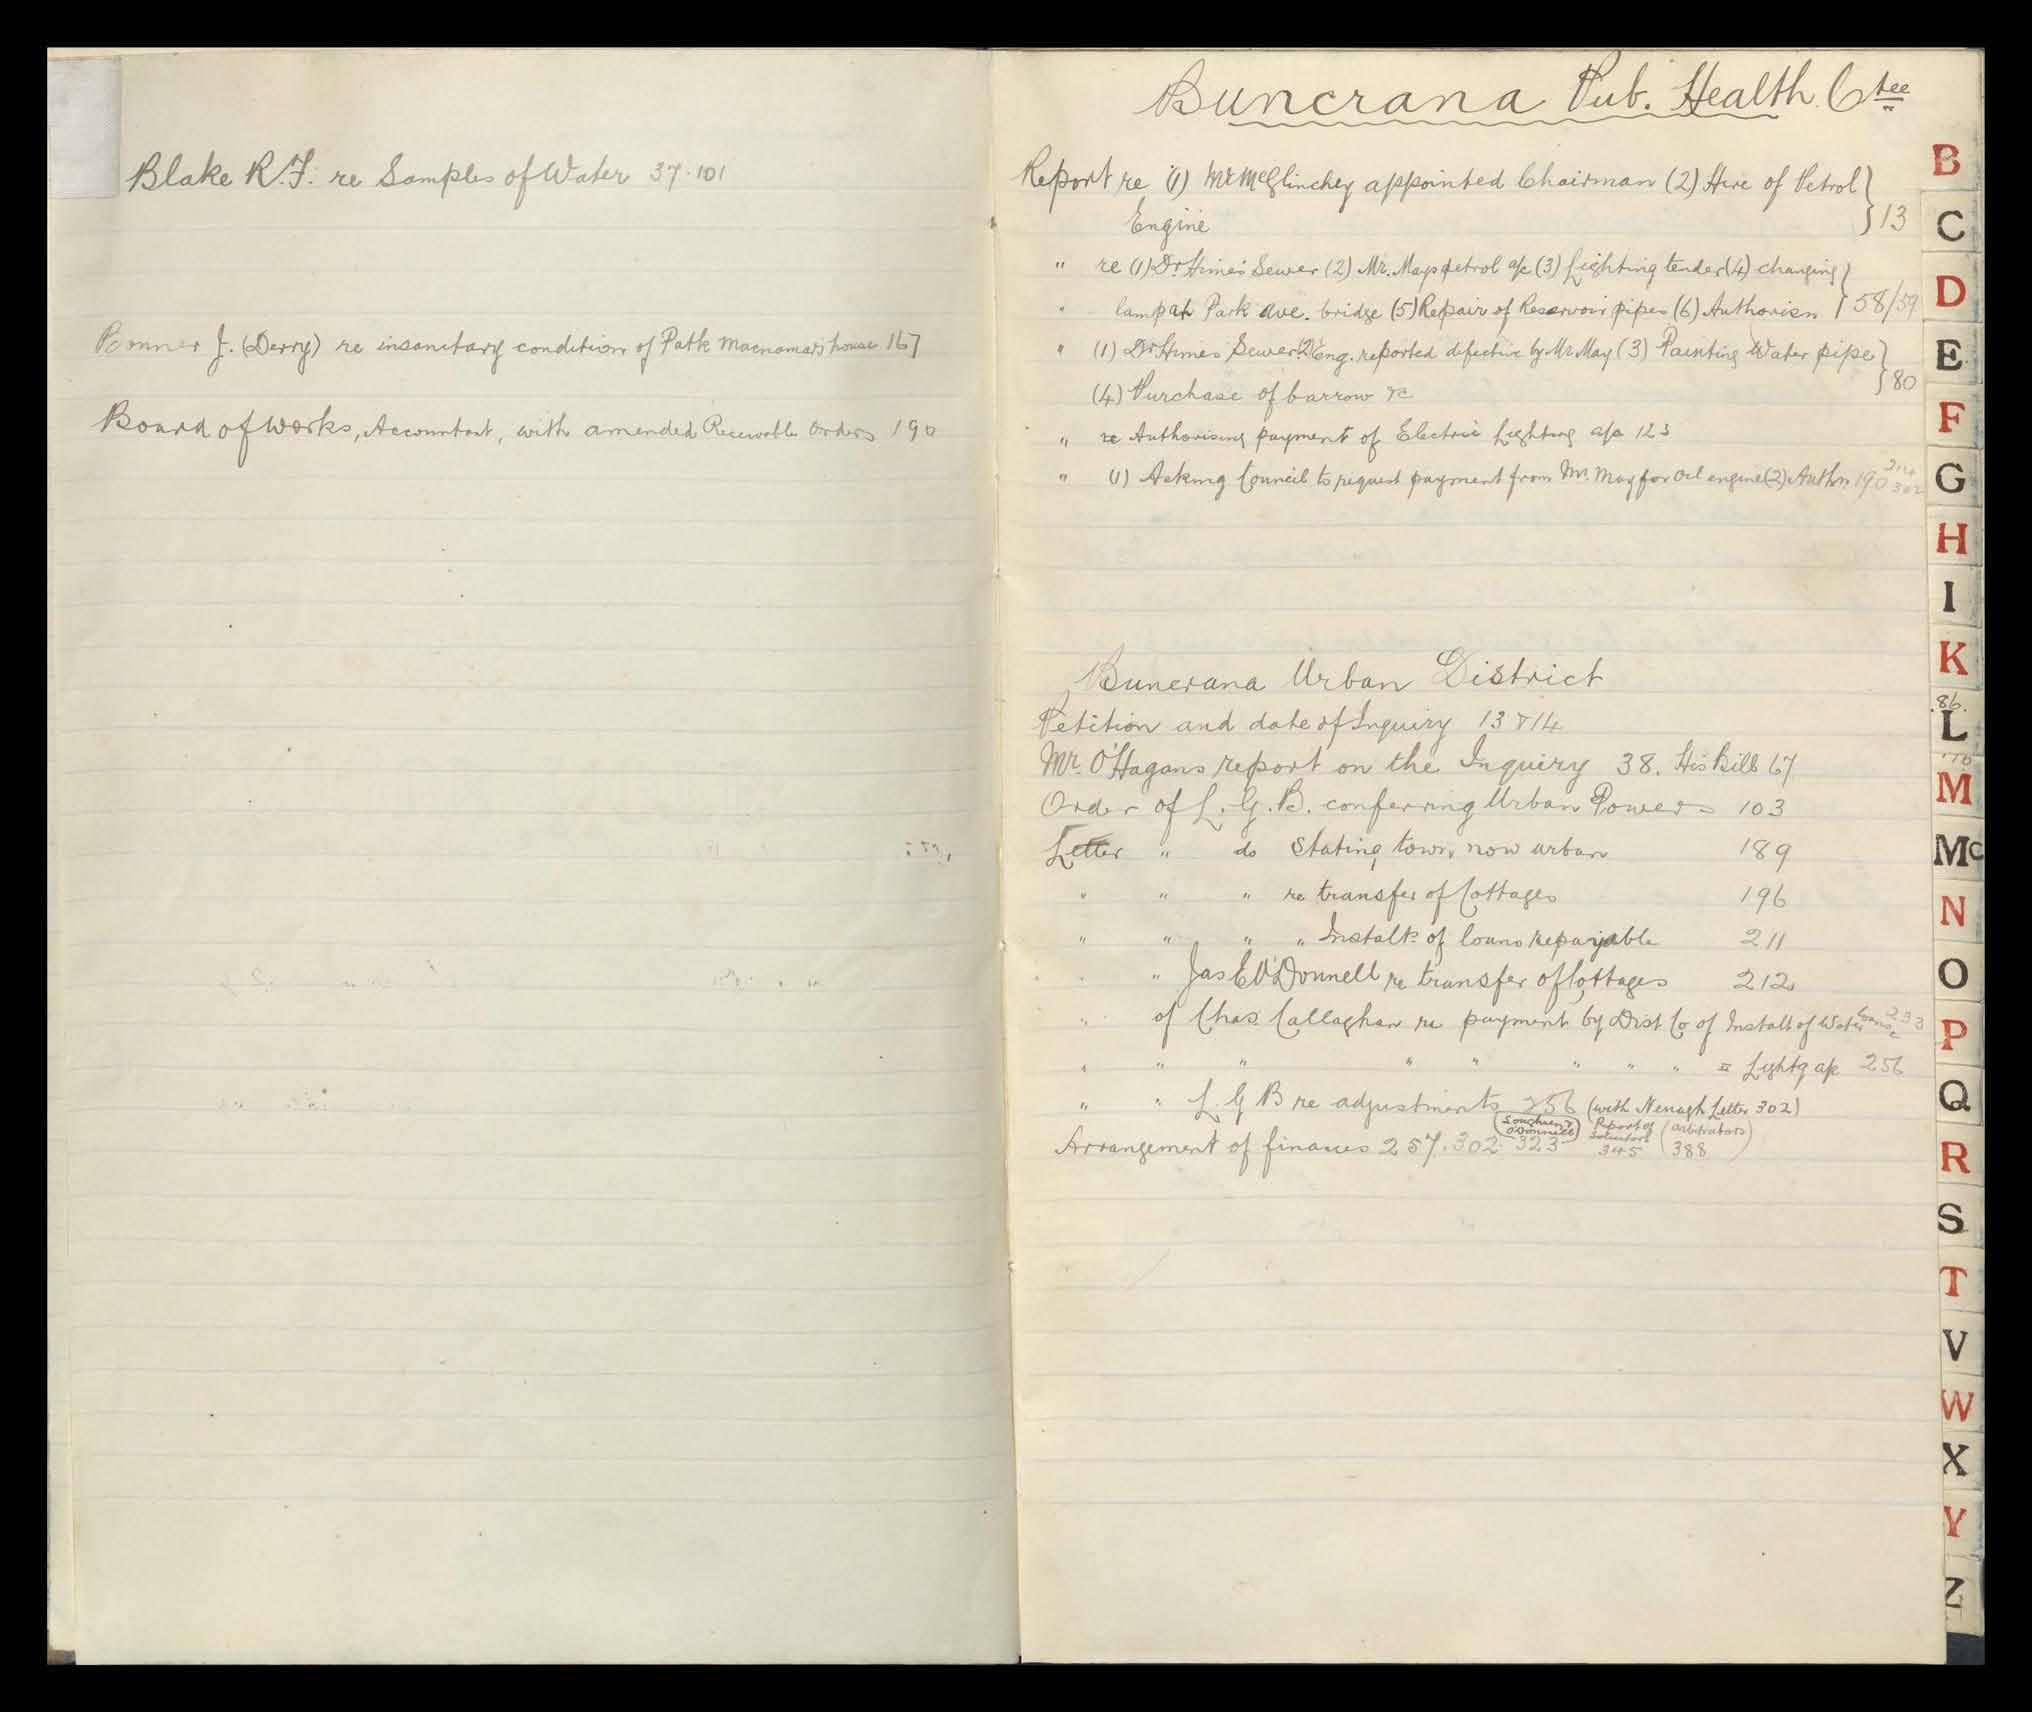 Blake R.F. re Samples of Water 37.101
Bonner J. (Derry) re insanitary condition of Patk Macnamar's house 167
Board of Works, Accountant, with amended Receivable Orders 190
Buncrana Pub. Health Ctee
Report re (1) Mr McGlinchey appointed Chairman (2) Hire of Petrol } 13
Engine
" re (1) Dr Hime's Sewer (2) Mr. Mays petrol a/c (3) Lighting tender (4) changing } 58/59
" lamp at Park Ave. bridge (5) Repair of Reservoir pipes (6) Authorisn
" (1) Dr Himes Sewer (2) Eng. reported defective by Mr May (3) Painting Water pipe } 80
(4) Purchase of barrow &c
" re Authorising payment of Electric Lighting a/c 123
" (1) Asking Council to request payment from Mr. May for Oil engine (2) Authn 190 302
Buncrana Urban District
Petition and date of Inquiry 13 & 14
Mr. O'Hagans report on the Inquiry 38. His Bill 67
Order of L.G.B. conferring Urban Powers 103
Letter " do Stating town now urban 189
" " " re transfer of Cottages 196
" " " " Instalts of loans repayable 211
" " Jas E O'Donnell re transfer of Cottages 212
" of Chas. Callaghan re payment by Dist Co of Installt of Water Loans 233
" " " " " " " " " Lightg a/c 256
" " L G B re adjustments 256 (with Nenagh Letter 302)
Arrangement of finances 257. 302. 323 (O'Donnell) Report of Solicitors 345 (arbitrators) 388
B
C
D
E
F
G
H
I
K
86.
L
M
Mc
N
O
P
Q
R
S
T
V
W
X
Y
Z